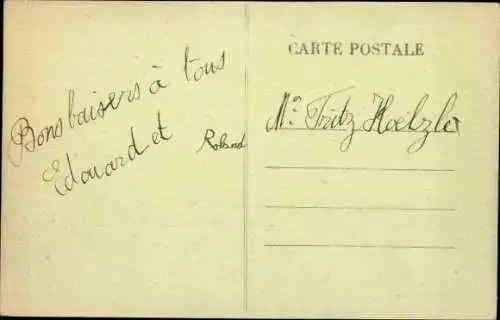 Bons baisers à tous
Edouard et Roland
CARTE POSTALE
Mr. Fritz Hoelzle